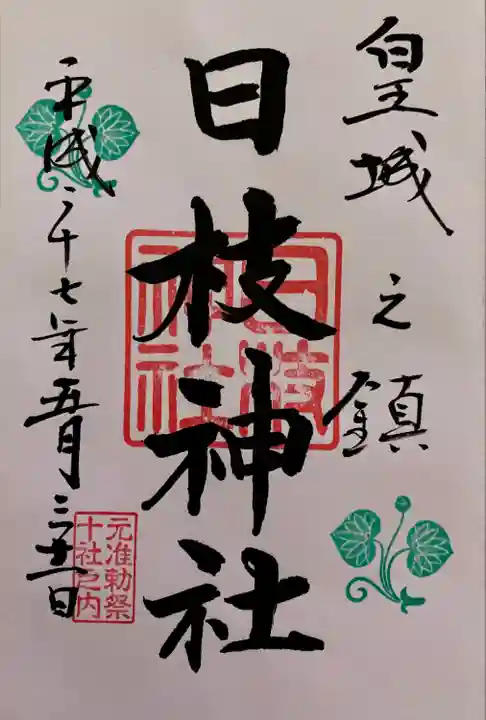 皇城之鎮
日枝神社
日枝神社
平成二十七年五月三十一日
元准勅祭
十社之内